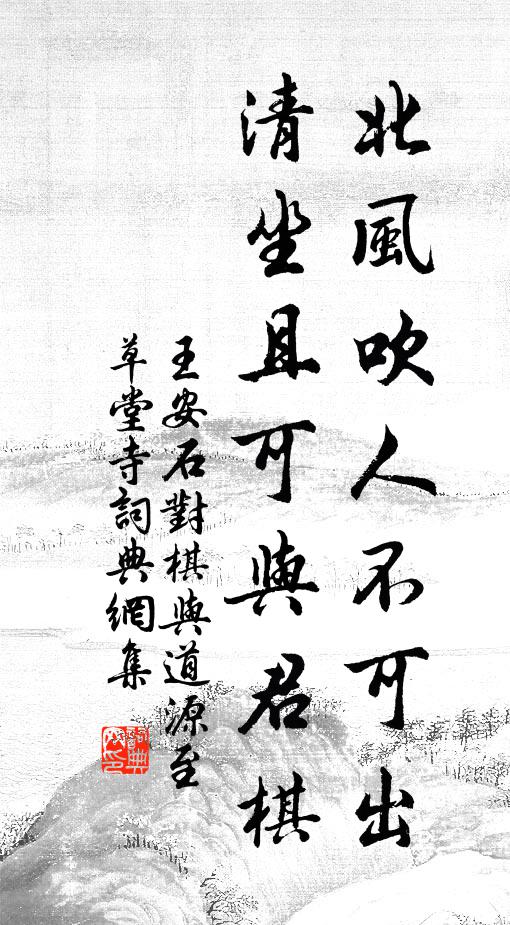 北風吹人不可出
清坐且可與君棋
王安石對棋與道源至
草堂寺詞典網集